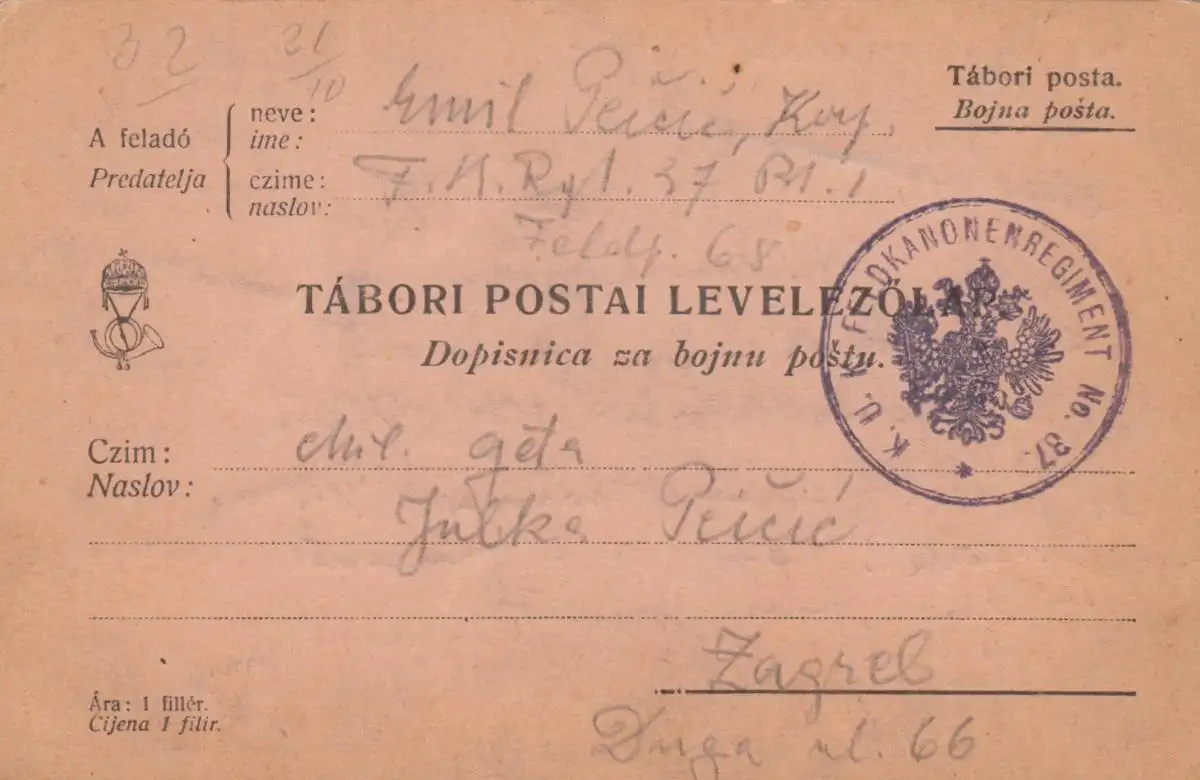 32 21/10
Tábori posta.
Bojna pošta.
A feladó
Predatelja
neve: Emil Peičić, Korp.
ime:
czime: F.K.Rgt. 37 Bt. 1
naslov:
Feldp. 68
TÁBORI POSTAI LEVELEZŐLAP.
Dopisnica za bojnu poštu.
K. U. K. FELDKANONENREGIMENT No. 37.
Czim:
Naslov:
Julka Peičić
Zagreb
Duga ul. 66
Ára: 1 fillér.
Cijena 1 filir.